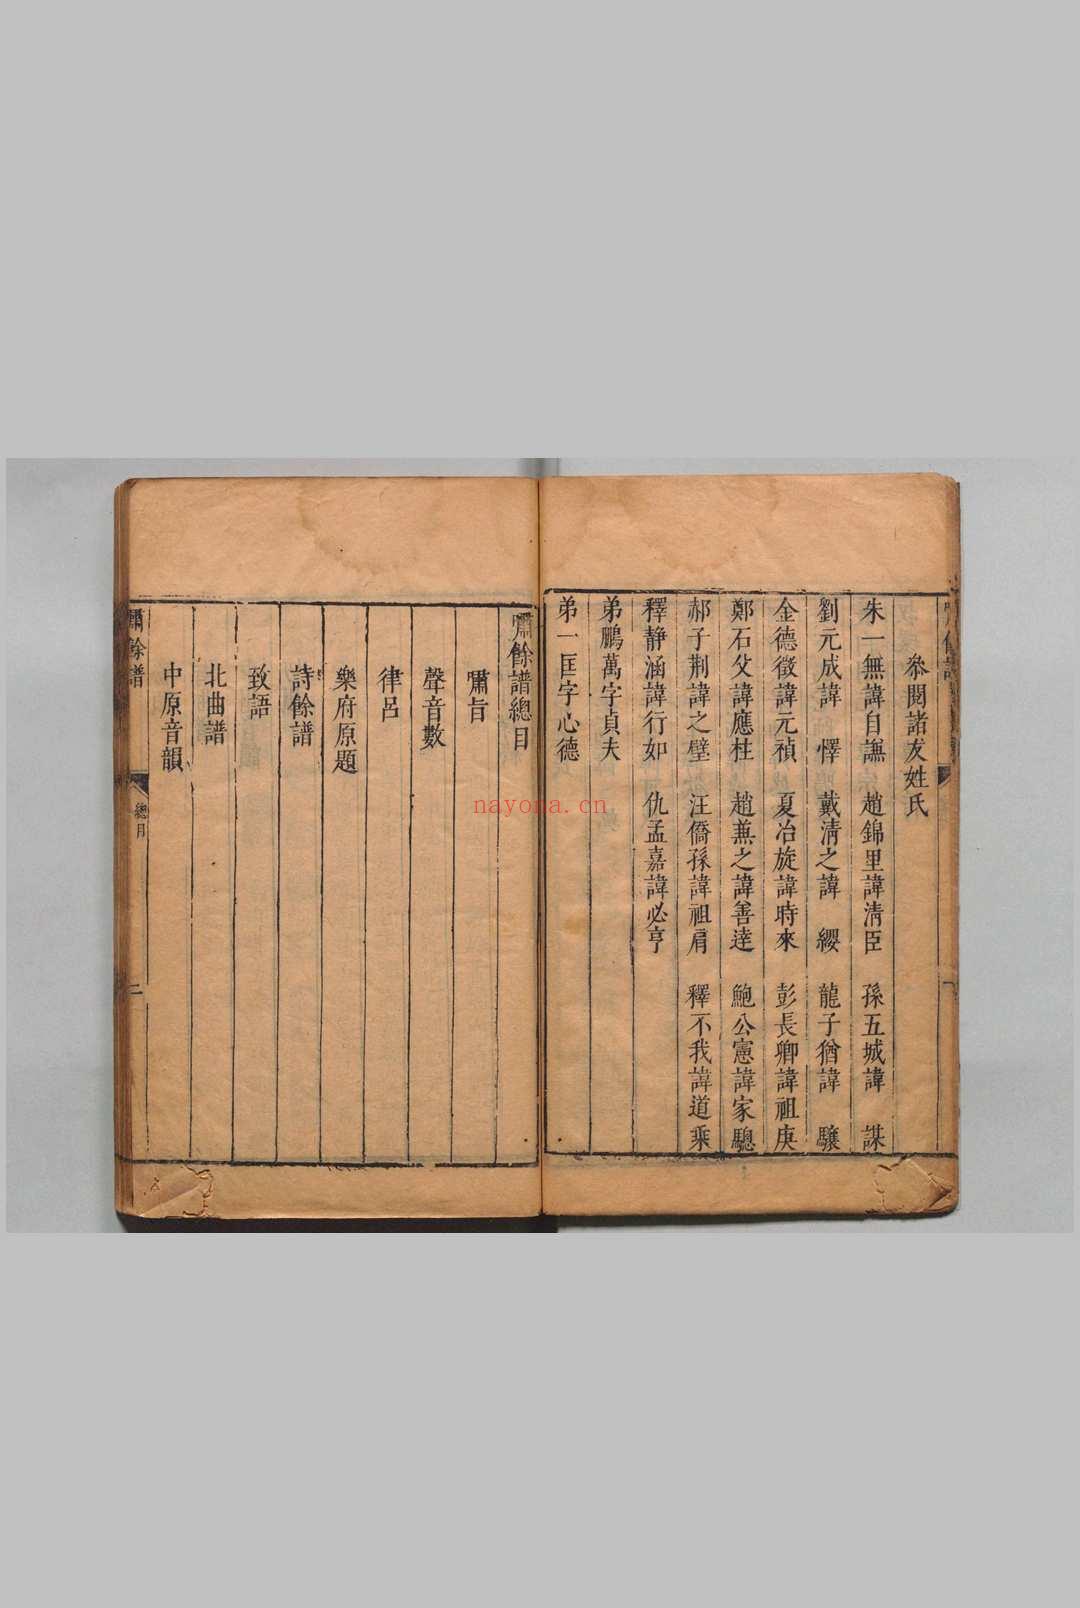 參閱諸友姓氏
朱一無諱自謙 趙錦里諱清臣 孫五城諱 謀
劉元成諱 懌 戴清之諱 纓 龍子猶諱 驤
金德徵諱元禎 夏冶旋諱時來 彭長卿諱祖庚
鄭石父諱應柱 趙蕪之諱善達 鮑公憲諱家驄
郝子荆諱之璧 汪僑孫諱祖肩 釋不我諱道乘
釋静涵諱行如 仇孟嘉諱必亨
弟鵬萬字貞夫
弟一匡字心德
嘯餘譜總目
嘯旨
聲音數
律呂
樂府原題
詩餘譜
致語
北曲譜
中原音韻
嘯餘譜 總目 二
nayona.cn